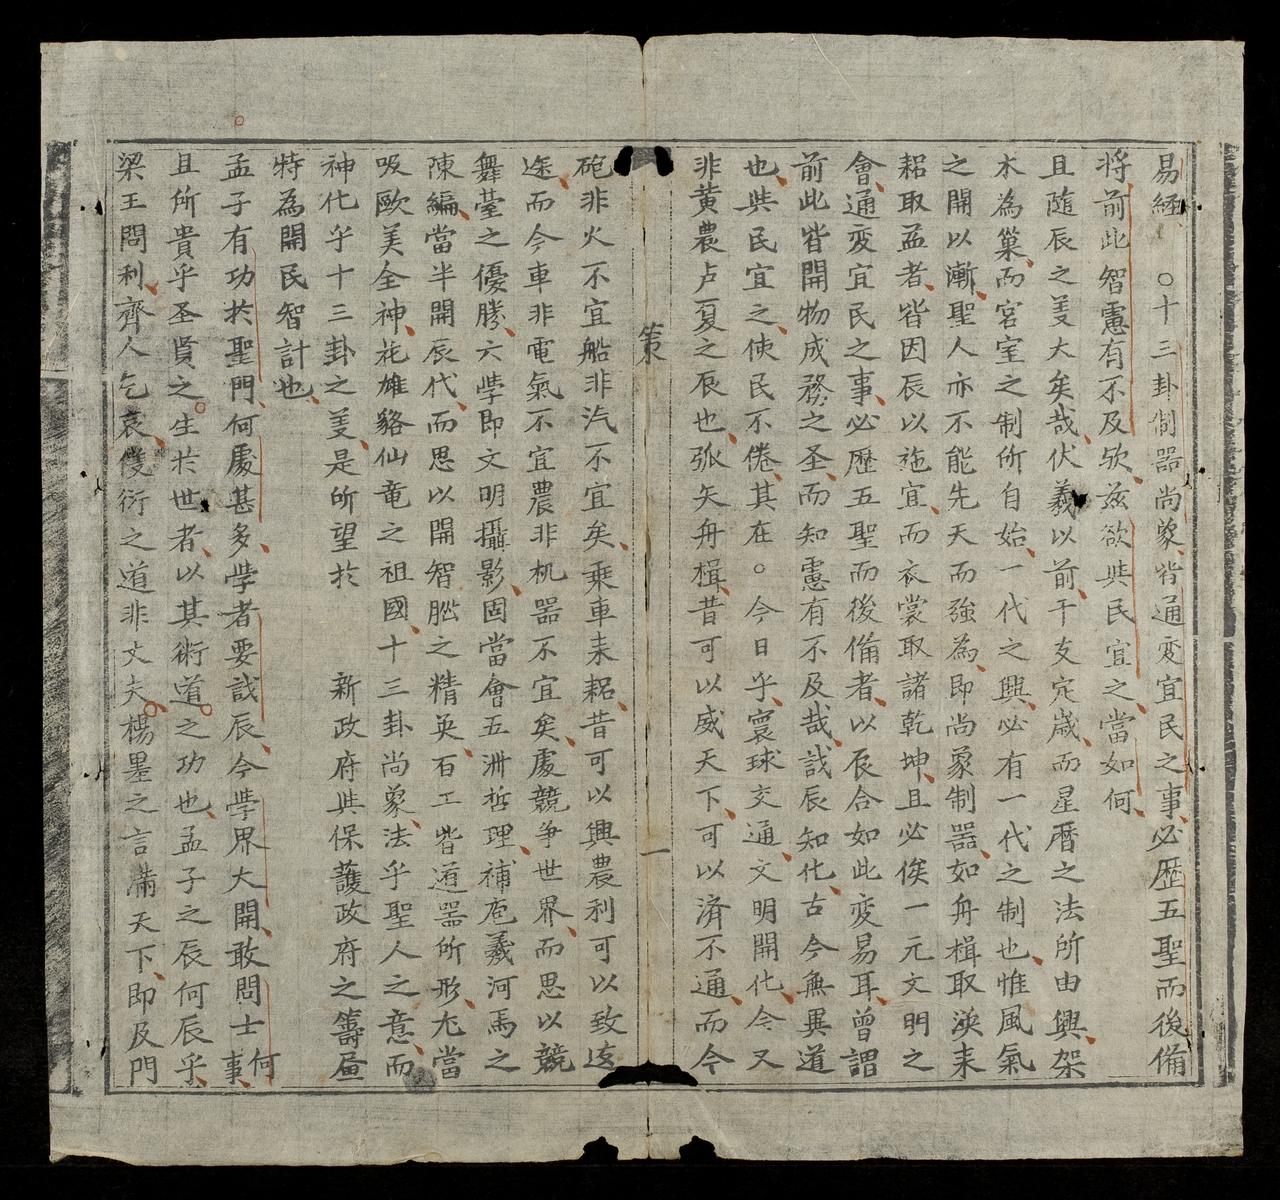 易經　○十三卦制器尚象皆通変宜民之事必歴五聖而後備
将前此智慮有不及欤兹欲與民宜之當如何
且随辰之義大矣哉伏羲以前干支定歲而星曆之法所由興架
木為巢而宮室之制所自始一代之興必有一代之制也惟風氣
之開以漸聖人亦不能先天而強為即尚象制噐如舟楫取渙耒
耜取益者皆因辰以施宜而衣裳取諸乾坤且必俟一元文明之
會通変宜民之事必歴五聖而後備者以辰合如此変易耳曾謂
前此皆開物成務之圣而知慮有不及哉哉辰知化古今無異道
也與民宜之使民不倦其在。今日乎寰球交通文明開化今又
非黄農虞夏之辰也弧矢舟楫昔可以威天下可以済不通而今
策
一
砲非火不宜船非汽不宜矣乘車耒耜昔可以興農利可以致遠
途而今車非電氣不宜農非机噐不宜矣處競争世界而思以競
舞臺之優勝六學即文明攝影固當會五洲哲理補庖羲河馬之
陳編當半開辰代而思以開智腦之精英百工皆道噐所形尤當
吸歐美全神花雄貉仙竜之祖國十三卦尚象法乎聖人之意而
神化乎十三卦之義是所望於　新政府與保護政府之籌画
特為開民智計也
孟子有功於聖門何處甚多學者要識辰今學界大開敢問士何事
且所貴乎圣贤之生於世者以其術道之功也孟子之辰何辰乎
梁王問利齊人乞哀儀衍之道非丈夫楊墨之言滿天下即及門